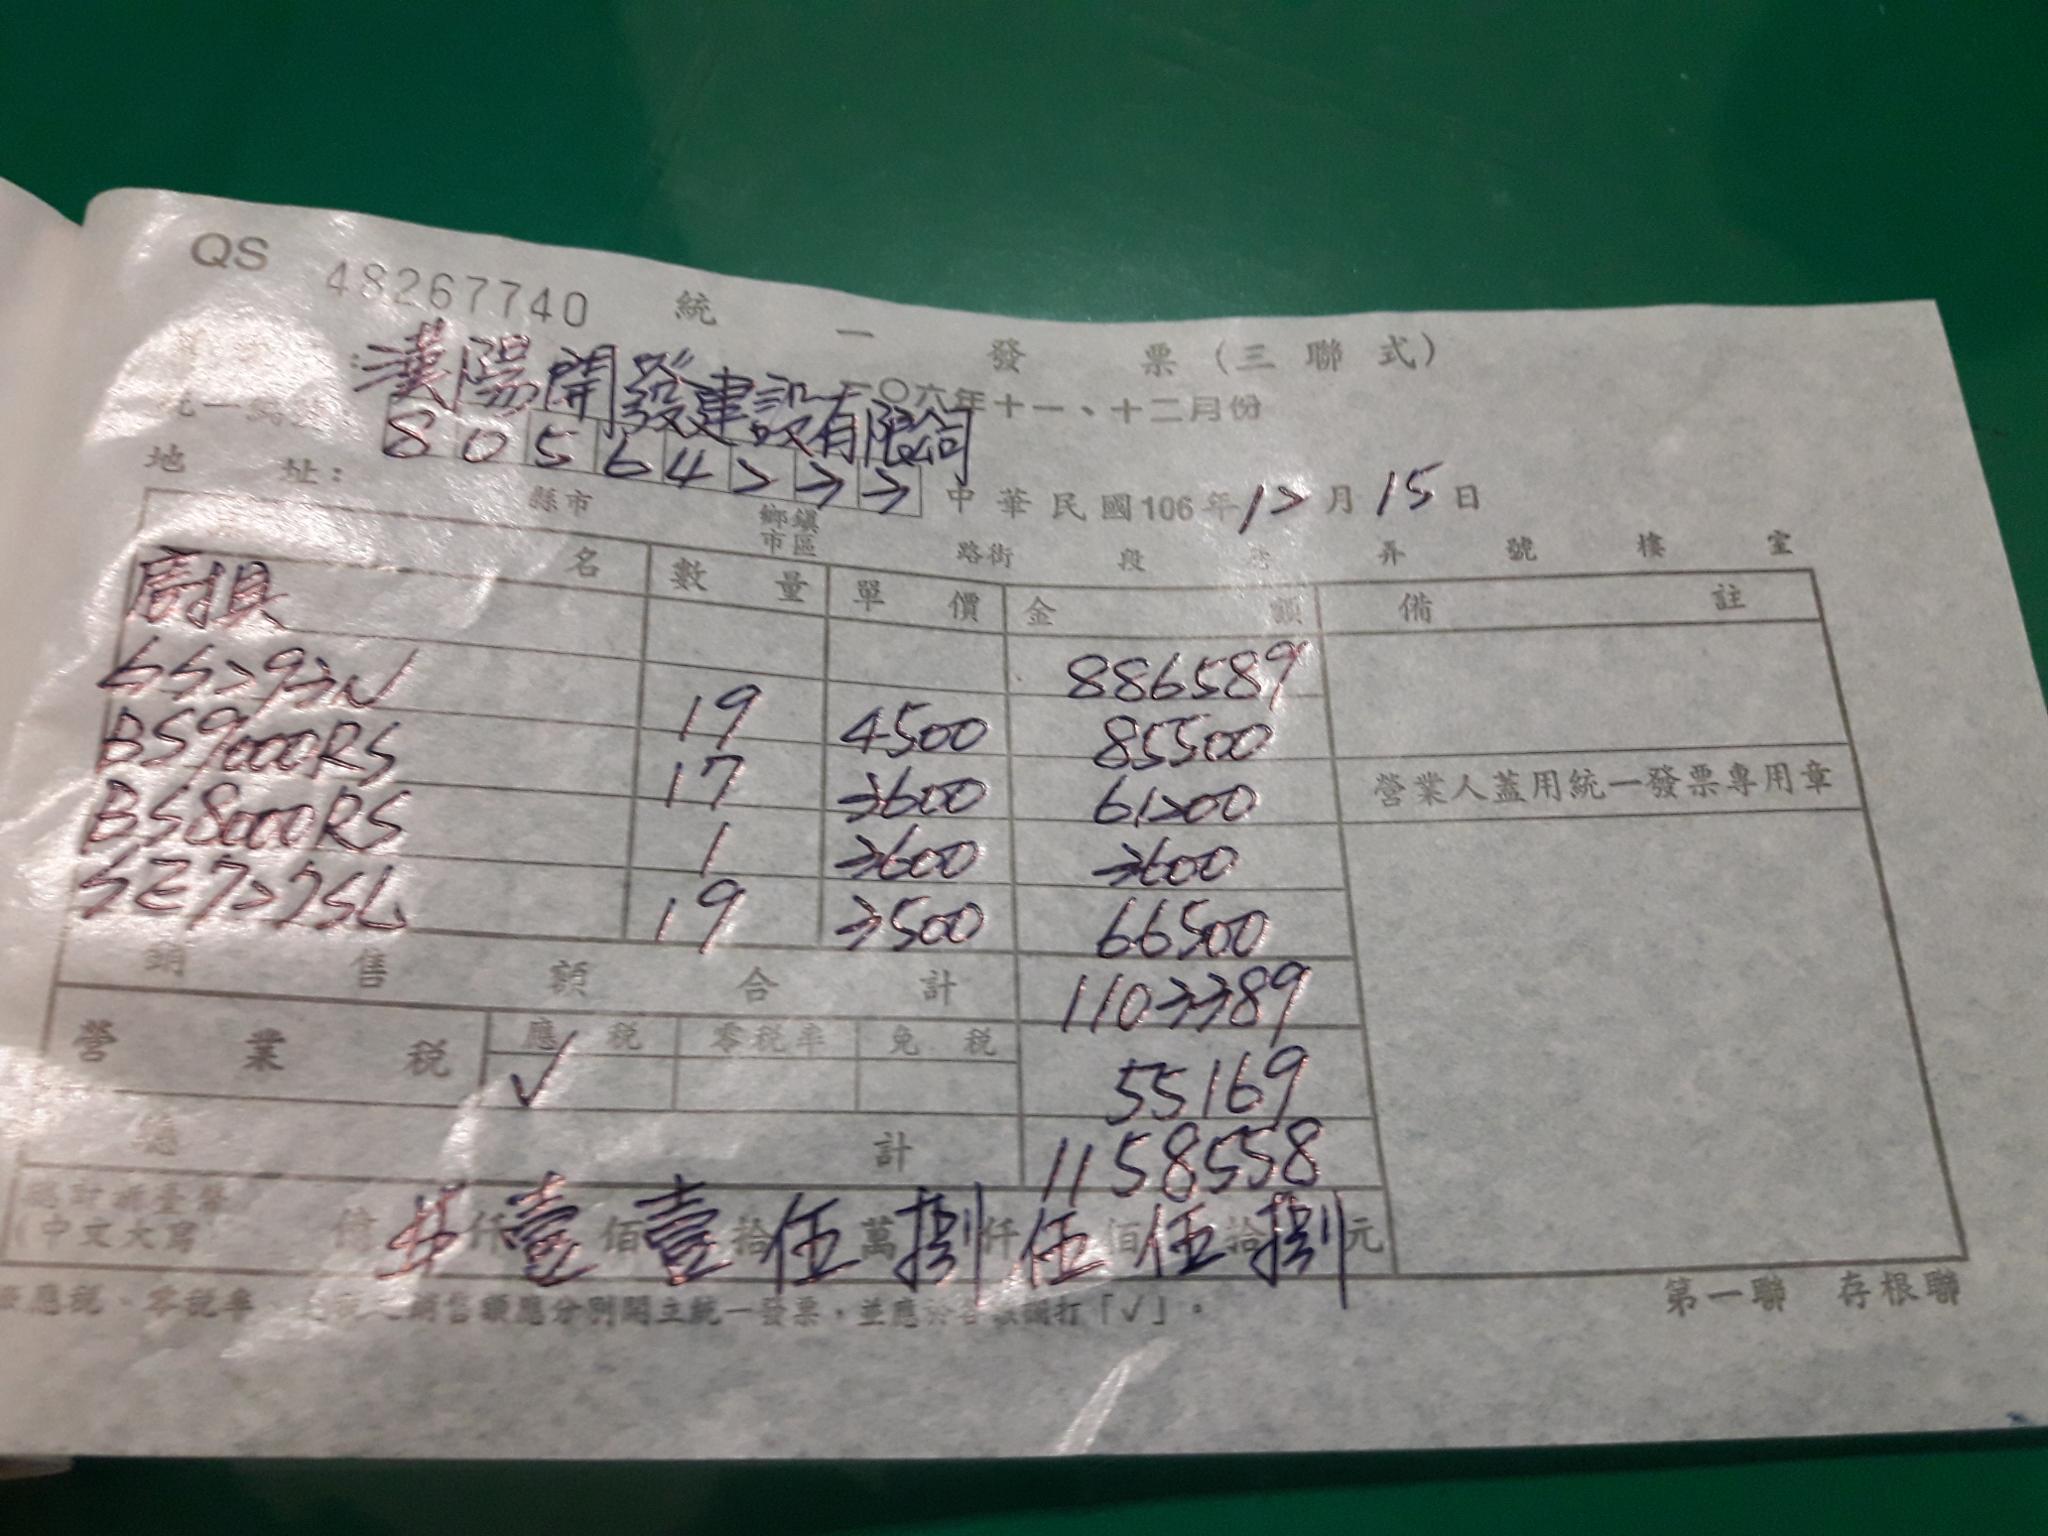 QS 48267740 統一發票(三聯式)
漢陽開發建設有限公司
一〇六年十一、十二月份
80564233
中華民國106年12月15日
地址: 縣市 鄉鎮市區 路街 段 巷 弄 號 樓 室
名 數量 單價 金額 備註
廚具 886589
19 4500 85500
BS9000RS 17 3600 61200
營業人蓋用統一發票專用章
BS8000RS 1 3600 3600
SE7727SL 19 3500 66500
銷售額合計 1103389
營業稅 應稅 零稅率 免稅
✓ 55169
總計 1158558
總計新臺幣
(中文大寫 仟壹佰壹拾伍萬捌仟伍佰伍拾捌元
應稅、零稅率 銷售額應分別開立統一發票,並應於各該欄打「✓」。
第一聯 存根聯